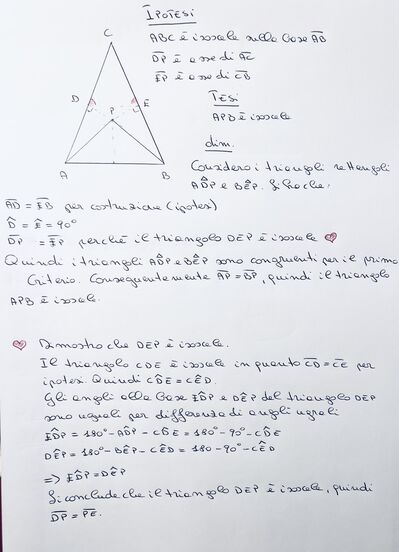 IPOTESI
C
ABC è isoscele sulla base AB
DP è asse di AC
EP è asse di CB
TESI
D
E
P
APB è isoscele
dim.
A
B
Considero i triangoli rettangoli
ADP e BEP. Si ha che:
AD = EB per costruzione (ipotesi)
D̂ = Ê = 90°
DP = EP perché il triangolo DEP è isoscele ♡
Quindi i triangoli AD̂P e BÊP sono congruenti per il primo
criterio. Conseguentemente AP = BP, quindi il triangolo
APB è isoscele.
♡ Dimostro che DEP è isoscele.
Il triangolo CDE è isoscele in quanto CD = CE per
ipotesi. Quindi CD̂E = CÊD.
Gli angoli alla base ED̂P e DÊP del triangolo DEP
sono uguali per differenza di angoli uguali
ED̂P = 180° - AD̂P - CD̂E = 180° - 90° - CD̂E
DÊP = 180° - BÊP - CÊD = 180 - 90° - CÊD
=> ED̂P = DÊP
Si conclude che il triangolo DEP è isoscele, quindi
DP = PE.